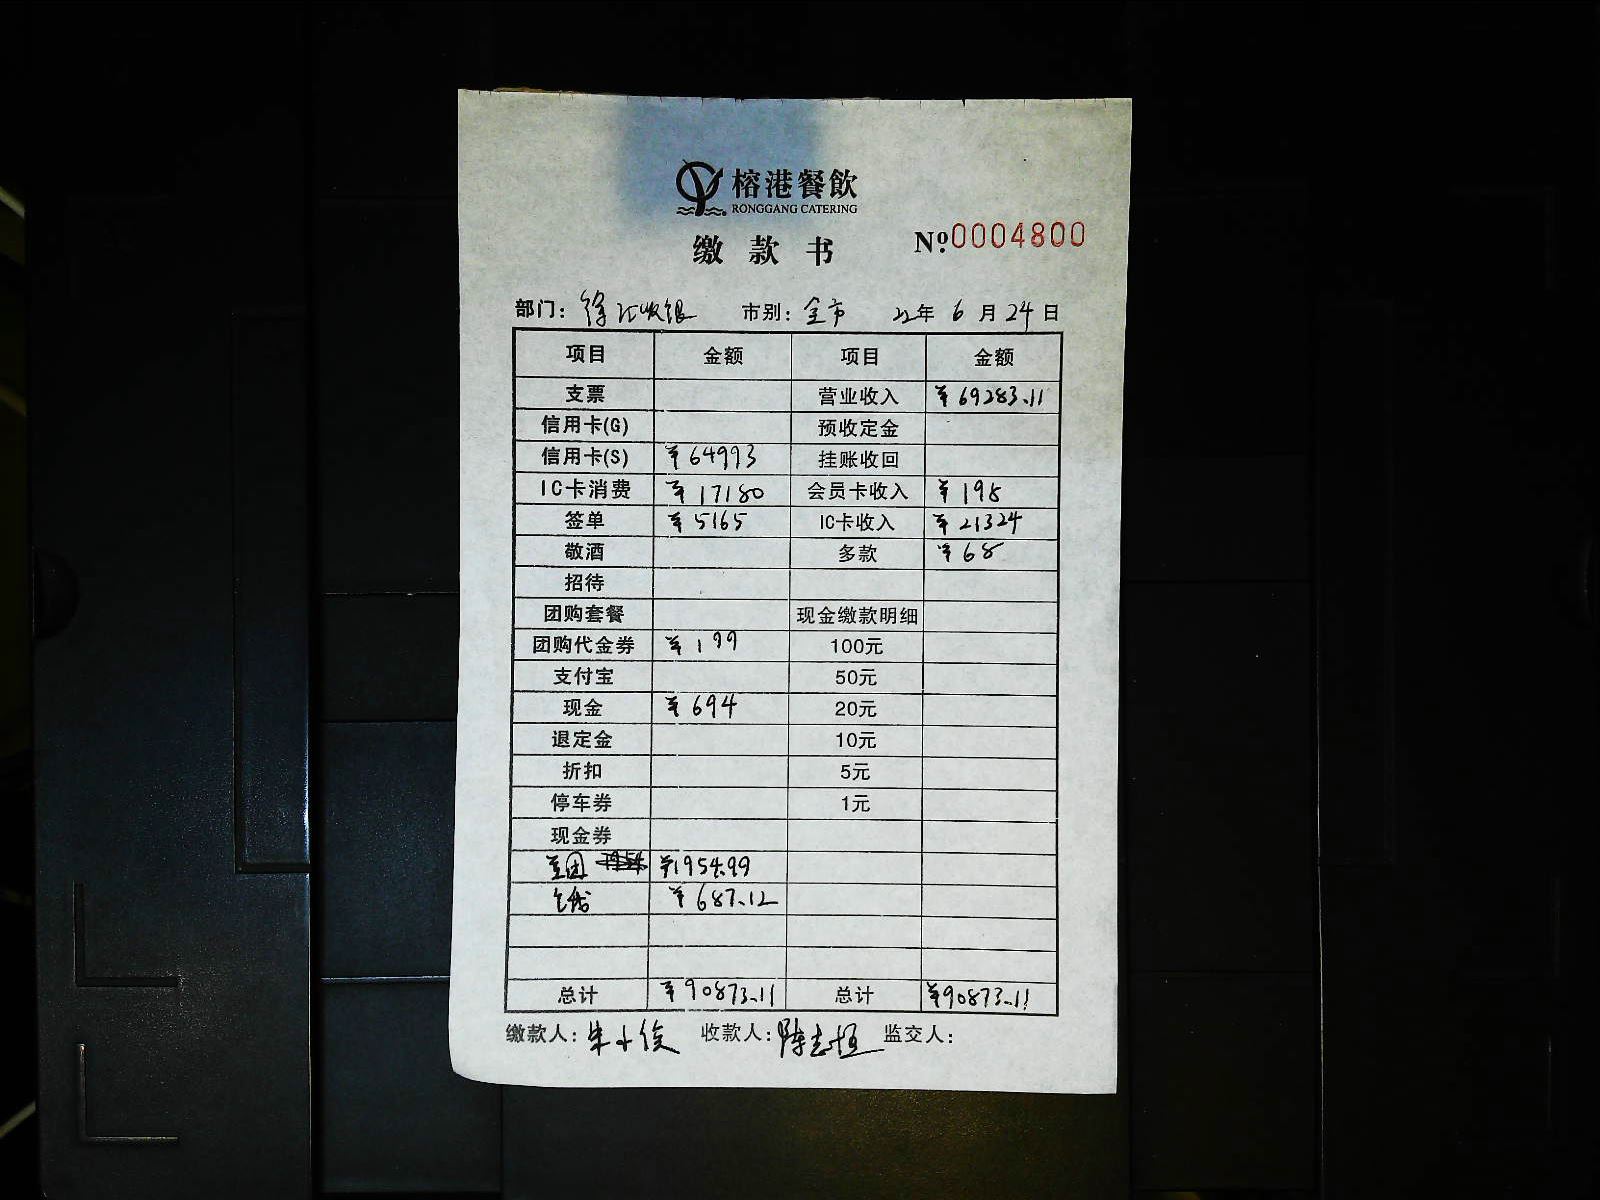 榕港餐飲
RONGGANG CATERING
缴款书 №0004800
部门：徐汇收银 市别：全市 22年6月24日
项目 金额 项目 金额
支票 营业收入 ¥69283.11
信用卡(G) 预收定金
信用卡(S) ¥64993 挂账收回
IC卡消费 ¥17180 会员卡收入 ¥198
签单 ¥5165 IC卡收入 ¥21324
敬酒 多款 ¥68
招待
团购套餐 现金缴款明细
团购代金券 ¥199 100元
支付宝 50元
现金 ¥694 20元
退定金 10元
折扣 5元
停车券 1元
现金券
美团 ¥1954.99
¥687.12
总计 ¥90873.11 总计 ¥90873.11
缴款人：朱小俊 收款人：陈志恒 监交人：